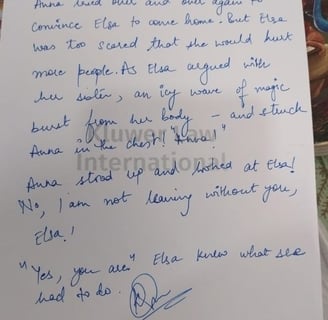 Anna tried over and over again to
convince Elsa to come home. But Elsa
was too scared that she would hurt
more people. As Elsa argued with
her sister, an icy wave of magic
burst from her body – and struck
Anna in the chest! "Anna!"
Kluwer Law
International
Anna stood up and looked at Elsa!
No, I am not leaving without you,
Elsa!
"Yes, you are." Elsa knew what she
had to do.